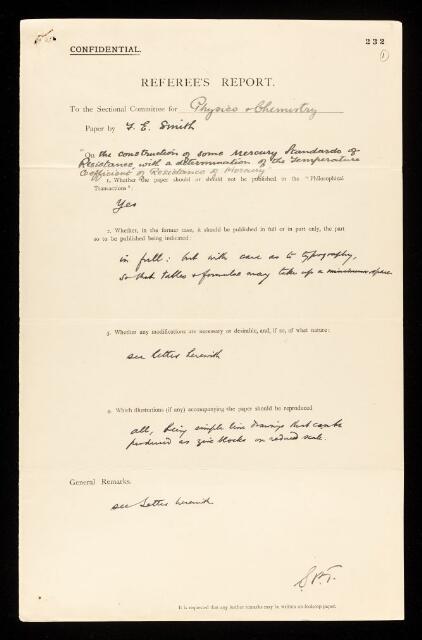 232
CONFIDENTIAL.
1
REFEREE'S REPORT.
To the Sectional Committee for Physics & Chemistry
Paper by F. E. Smith
"On the construction of some Mercury Standards of
Resistance, with a determination of the Temperature
Coefficient of Resistance of Mercury"
1. Whether the paper should or should not be published in the "Philosophical
Transactions":
Yes
2. Whether, in the former case, it should be published in full or in part only, the part
so to be published being indicated:
in full: but with care as to typography,
so that tables & formulae may take up a minimum space.
3. Whether any modifications are necessary or desirable, and, if so, of what nature:
see letter herewith
4. Which illustrations (if any) accompanying the paper should be reproduced
all, being simple line drawings that can be
produced as zinc blocks on reduced scale.
General Remarks.
see letter herewith
S.P.T.
It is requested that any further remarks may be written on foolscap paper.